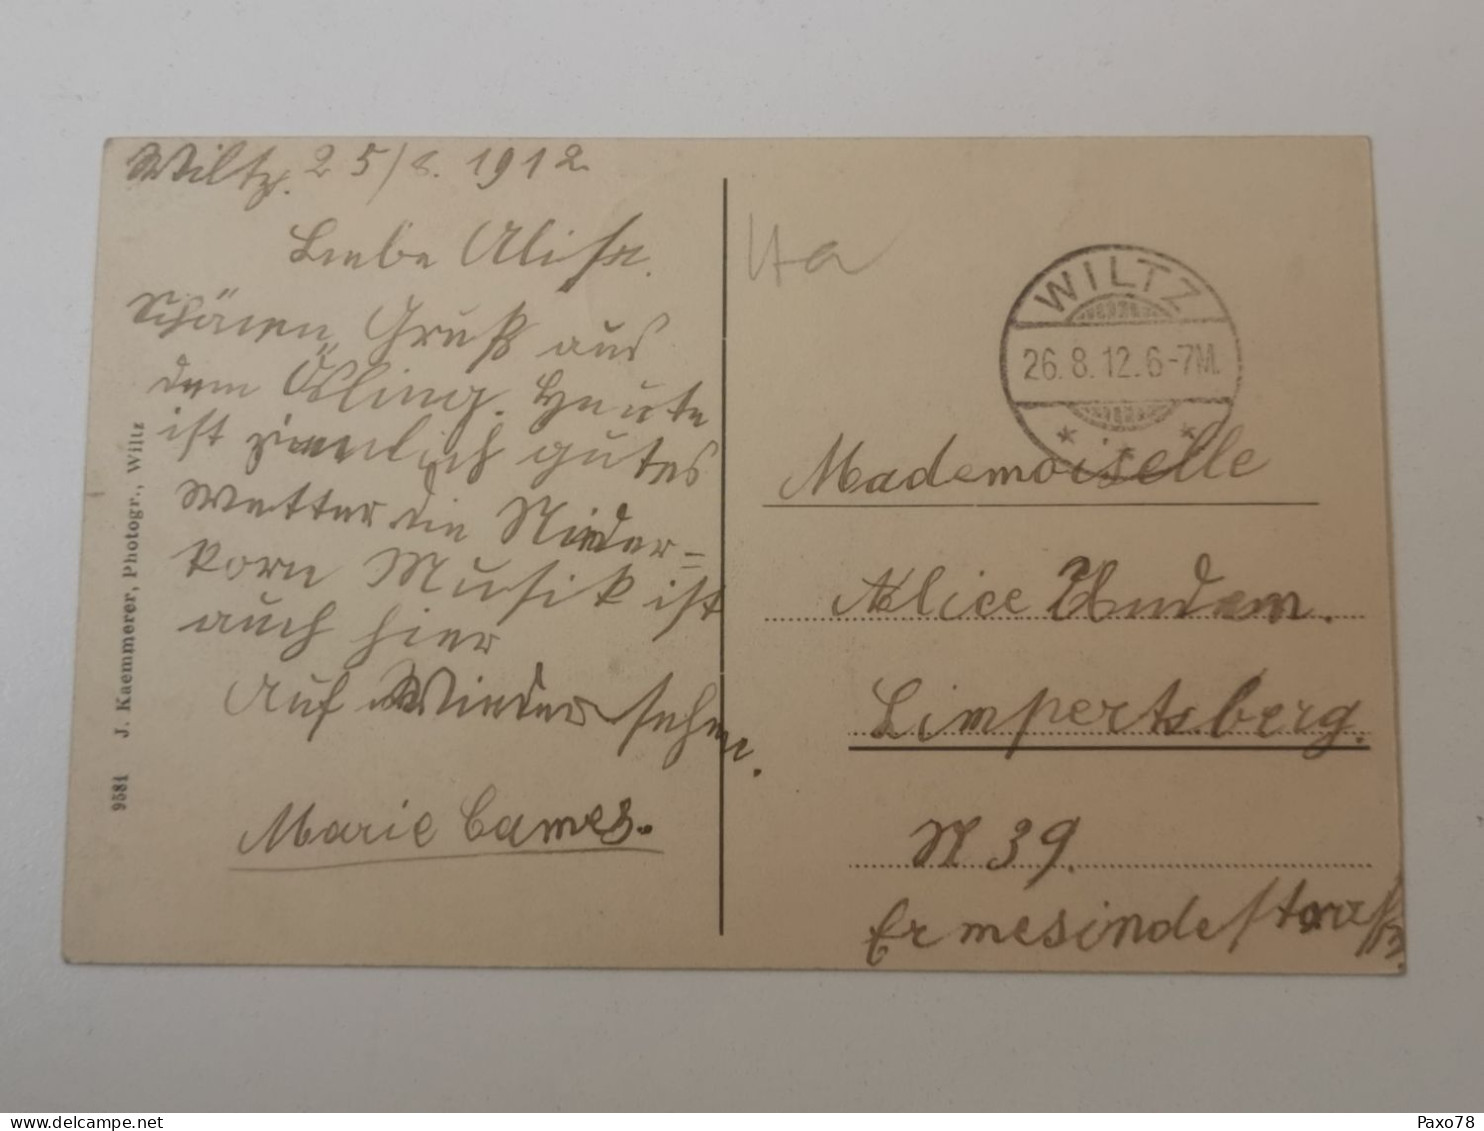 Wiltz. 25/8. 1912.
Liebe Alise.
Schönen Gruß aus
dem Ösling. Heute
ist ziemlich gutes
Wetter die Nieder=
korn Musik ist
auch hier
Auf Wiedersehen.
Marie Cames.
9581 J. Kaemmerer, Photogr., Wiltz
WILTZ
26.8.12.6-7M.
Mademoiselle
Alice
Limpertsberg.
N 39.
Ermesindestrasse.
delcampe.net
Paxo78